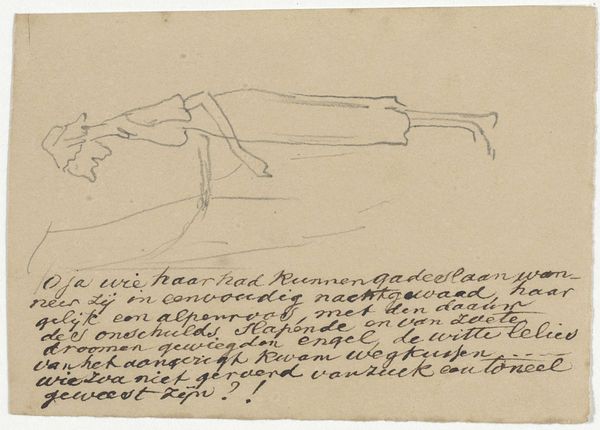 O ja wie haar had kunnen gadeslaan wan-
neer zij in eenvoudig nachtgewaad, haar
gelijk een alpenroos, met den daauw
des onschulds, slapende en van zoete
droomen gewiegden engel, de witte lelies
van het aangezigt kwam wegkussen ....
wie zoa niet geroerd van zulk een toneel
geweest zijn?!